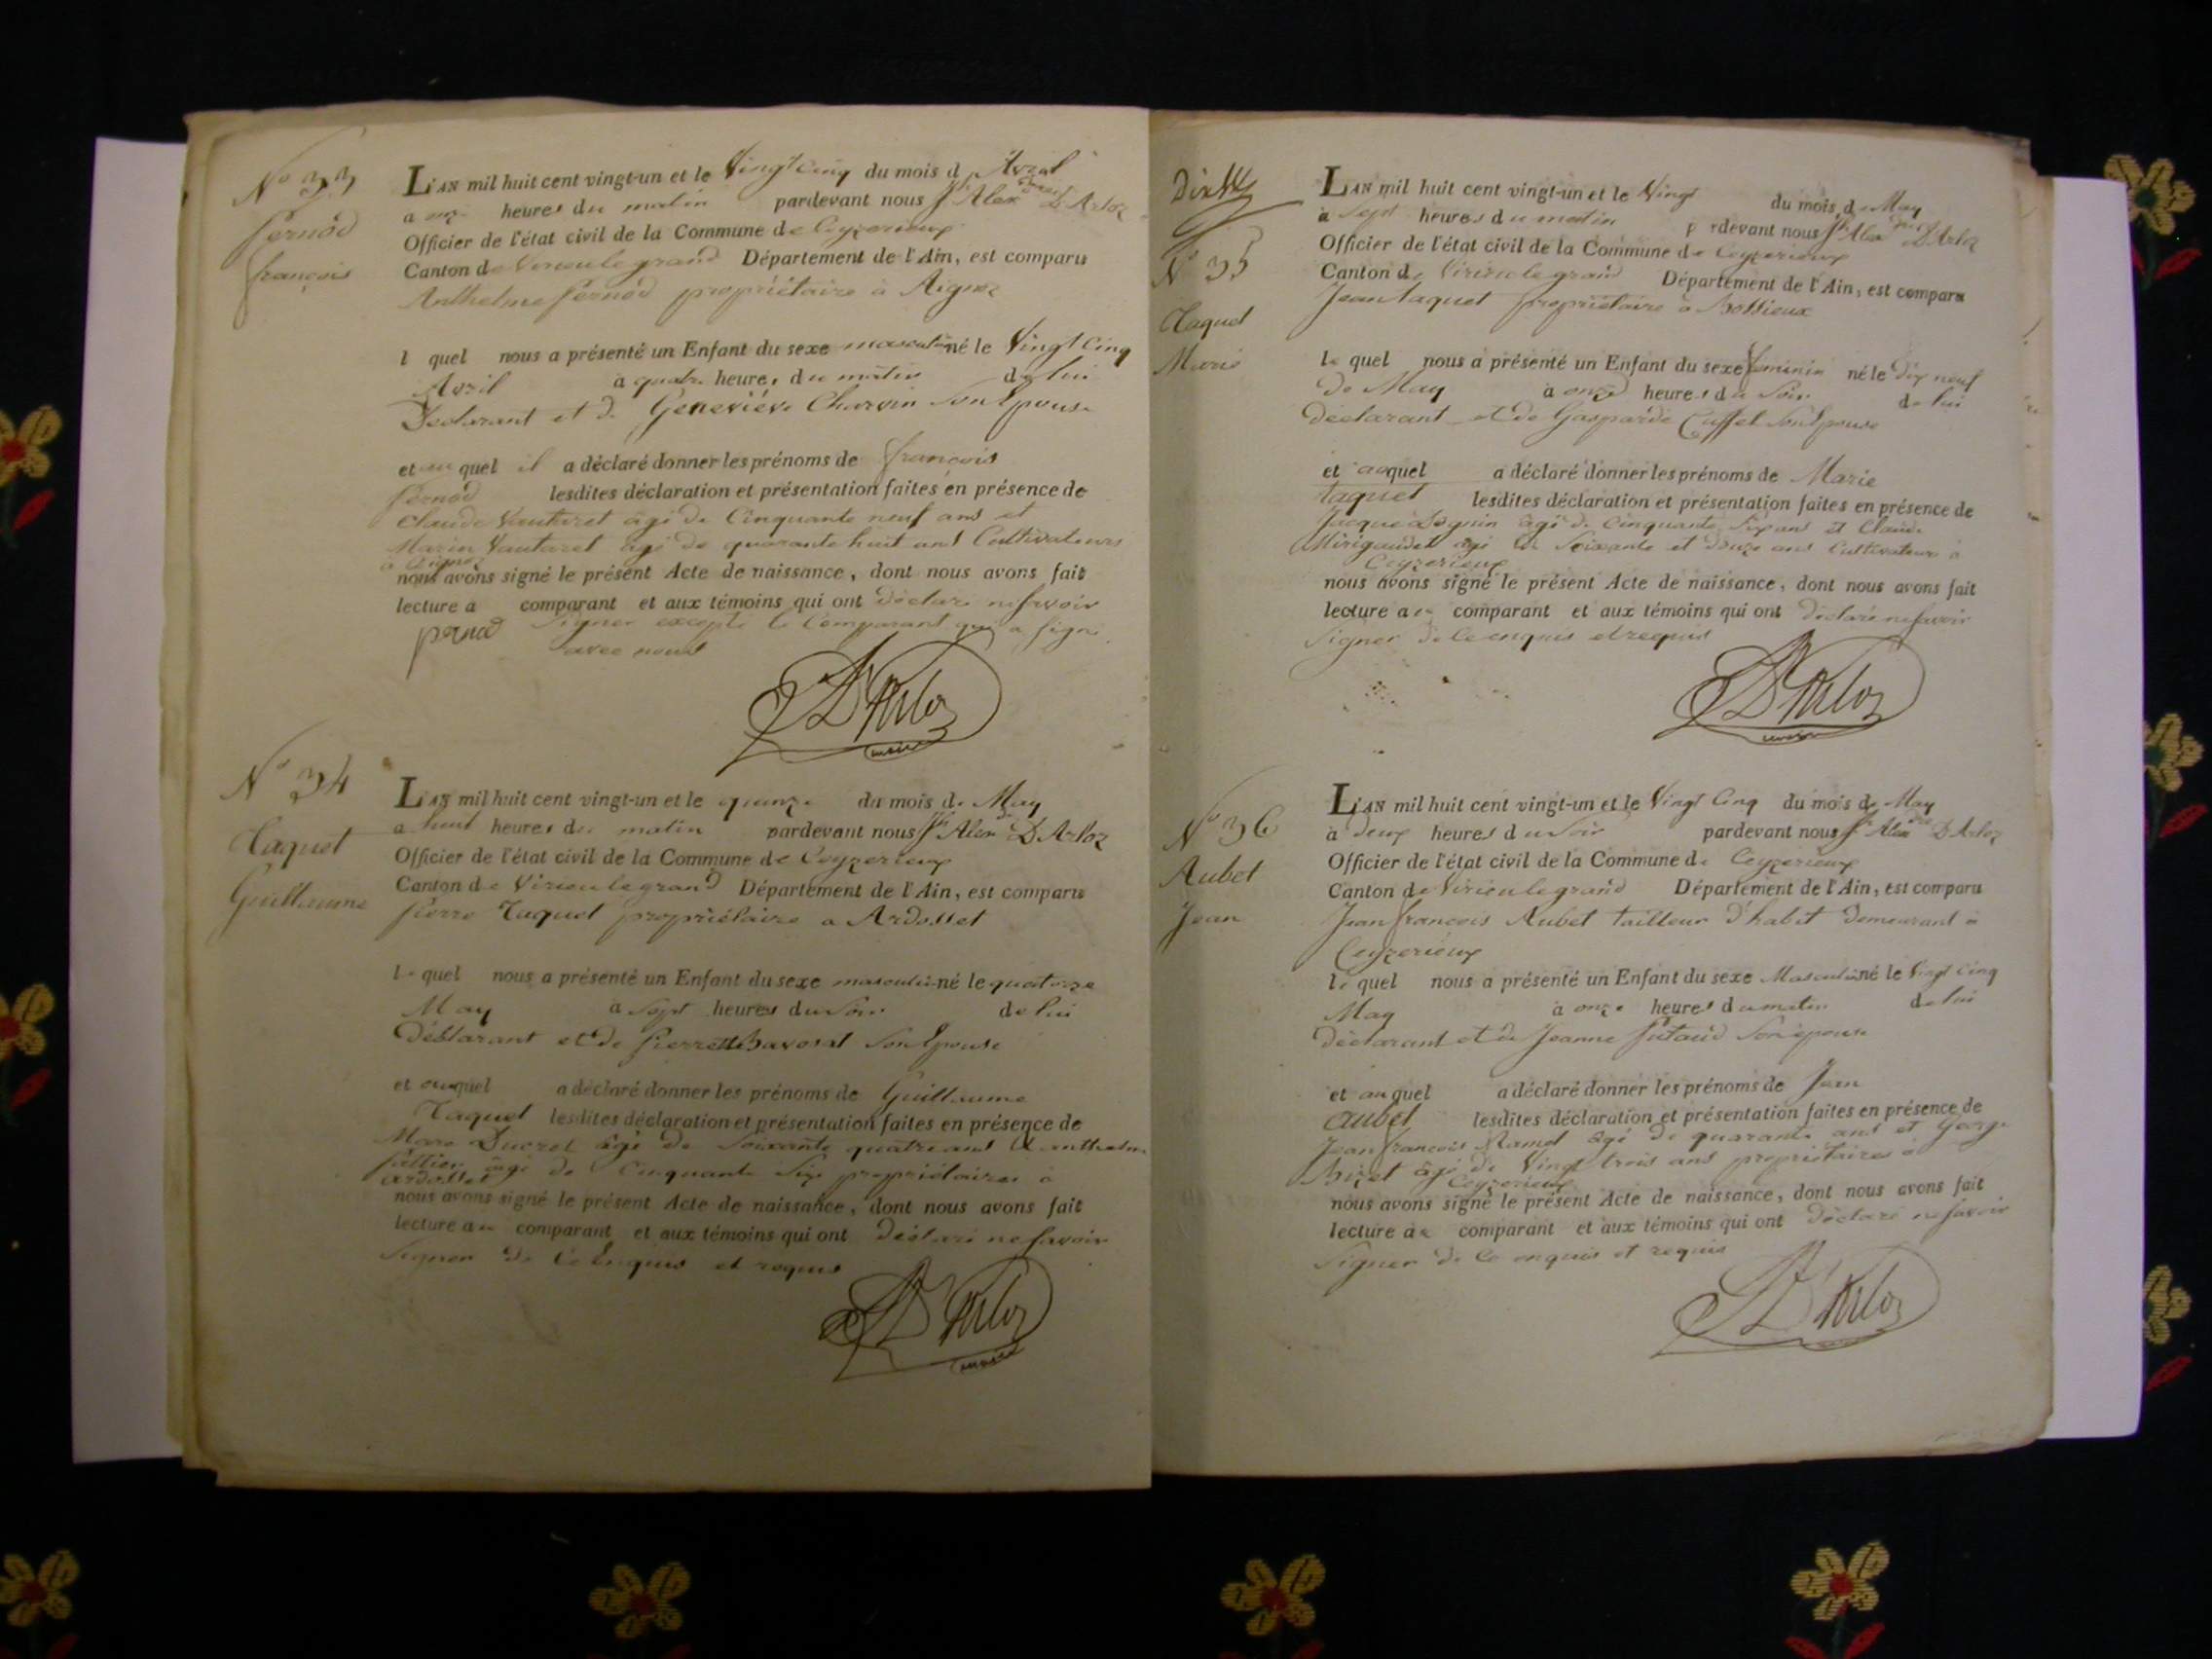 N° 33
Pernod
françois
L'AN mil huit cent vingt-un et le Vingt Cinq du mois d Avril
a onze heures du matin pardevant nous Jh Alexdre D'Arloz
Officier de l'état civil de la Commune de Ceyzerieux
Canton de Virieu le grand Département de l'Ain, est comparu
Anthelme Pernod propriétaire à Aignoz
l quel nous a présenté un Enfant du sexe masculin né le Vingt Cinq
Avril à quatre heures du matin de lui
Declarant et de Geneviève Charvin Son Epouse
et au quel il a déclaré donner les prénoms de françois
Pernod lesdites déclaration et présentation faites en présence de
Claude Vautaret âgé de Cinquante neuf ans et
Marin Vautaret âgé de quarante huit ans Cultivateurs
à Aignoz
nous avons signé le présent Acte de naissance, dont nous avons fait
lecture a comparant et aux témoins qui ont déclaré ne savoir
Signer excepté le Comparant qui a signé
avec nous
pernod
D'Arloz
N° 34
Taquet
Guillaume
L'AN mil huit cent vingt-un et le quinze du mois de May
a huit heures du matin pardevant nous Jh Alexdre D'Arloz
Officier de l'état civil de la Commune de Ceyzerieux
Canton de Virieu le grand Département de l'Ain, est comparu
Pierre Taquet propriétaire a Ardosset
le quel nous a présenté un Enfant du sexe masculin né le quatorze
May à Sept heures du Soir de lui
Déclarant et de Pierrette Bavosat Son Epouse
et auquel a déclaré donner les prénoms de Guillaume
Taquet lesdites déclaration et présentation faites en présence de
Marc Ducret âgé de Soixante quatre ans & anthelme
âgé de Cinquante Six propriétaires à
ardosset
nous avons signé le présent Acte de naissance, dont nous avons fait
lecture au comparant et aux témoins qui ont déclaré ne savoir
Signer de Ce Enquis et requis
D'Arloz
N° 35
Taquet
Marie
L'AN mil huit cent vingt-un et le Vingt du mois de May
à Sept heures du matin p rdevant nous Jh Alexdre D'Arloz
Officier de l'état civil de la Commune de Ceyzerieux
Canton de Virieu le grand Département de l'Ain, est comparu
Jean Taquet propriétaire à
le quel nous a présenté un Enfant du sexe féminin né le dix neuf
de May à onze heures du Soir de lui
déclarant et de Gasparde Son Epouse
et auquel a déclaré donner les prénoms de Marie
Taquet lesdites déclaration et présentation faites en présence de
Jacque âgé de Cinquante Six ans et Claude
âgé de Soixante et douze ans Cultivateurs à
Ceyzerieux
nous avons signé le présent Acte de naissance, dont nous avons fait
lecture au comparant et aux témoins qui ont déclaré ne savoir
Signer de Ce enquis et requis
D'Arloz
N° 36
Aubet
Jean
L'AN mil huit cent vingt-un et le Vingt Cinq du mois de May
à deux heures du Soir pardevant nous Jh Alexdre D'Arloz
Officier de l'état civil de la Commune de Ceyzerieux
Canton de Virieu le grand Département de l'Ain, est comparu
Jean françois Aubet tailleur d'habit demeurant à
Ceyzerieux
le quel nous a présenté un Enfant du sexe Masculin né le Vingt Cinq
May à onze heures du matin de lui
déclarant et de Jeanne Son épouse
et au quel a déclaré donner les prénoms de Jean
aubet lesdites déclaration et présentation faites en présence de
Jean françois Ramel âgé de quarante ans et George
Bizet âgé de Vingt trois ans propriétaires à
Ceyzerieux
nous avons signé le présent Acte de naissance, dont nous avons fait
lecture au comparant et aux témoins qui ont déclaré ne savoir
Signer de Ce enquis et requis
D'Arloz